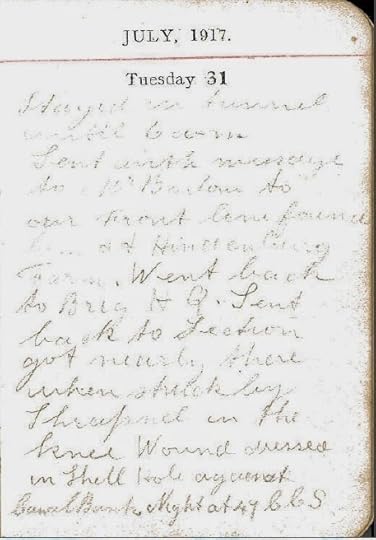 JULY, 1917.
Tuesday 31
Stayed in tunnel
until 6 a.m
Sent with message
to Mr Barlow to
our Front line found
at Hindenburg
Farm. Went back
to Brig H Q. Sent
back to Section
got nearly there
when struck by
Shrapnel in the
knee Wound dressed
in Shell Hole against
Canal Bank Night at 47 C C S